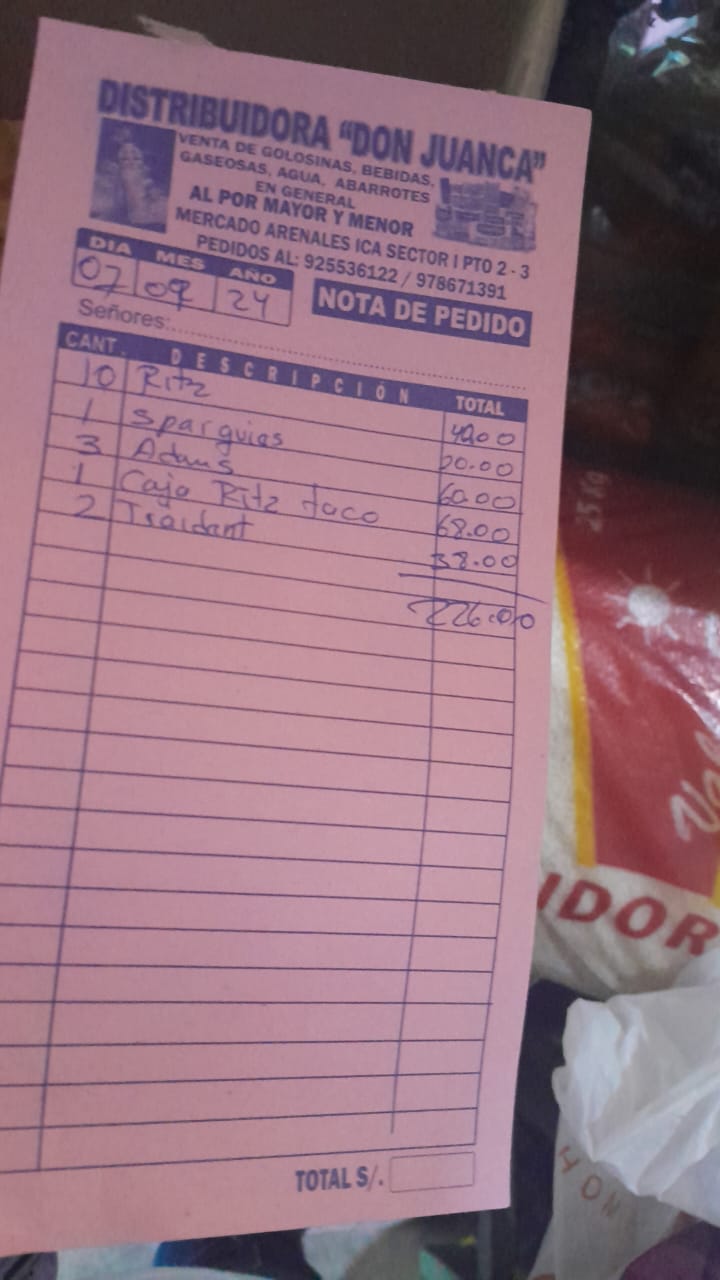 DISTRIBUIDORA "DON JUANCA"
VENTA DE GOLOSINAS, BEBIDAS,
GASEOSAS, AGUA, ABARROTES
EN GENERAL
AL POR MAYOR Y MENOR
MERCADO ARENALES ICA SECTOR I PTO 2 - 3
PEDIDOS AL: 925536122 / 978671391
DIA MES AÑO
07 09 24
NOTA DE PEDIDO
Señores:
CANT. DESCRIPCIÓN TOTAL
10 Ritz 40.00
1 sparguias 20.00
3 Adams 60.00
1 Caja Ritz taco 68.00
2 Traidant 38.00
226.00
TOTAL S/.
25 Kg
IDOR